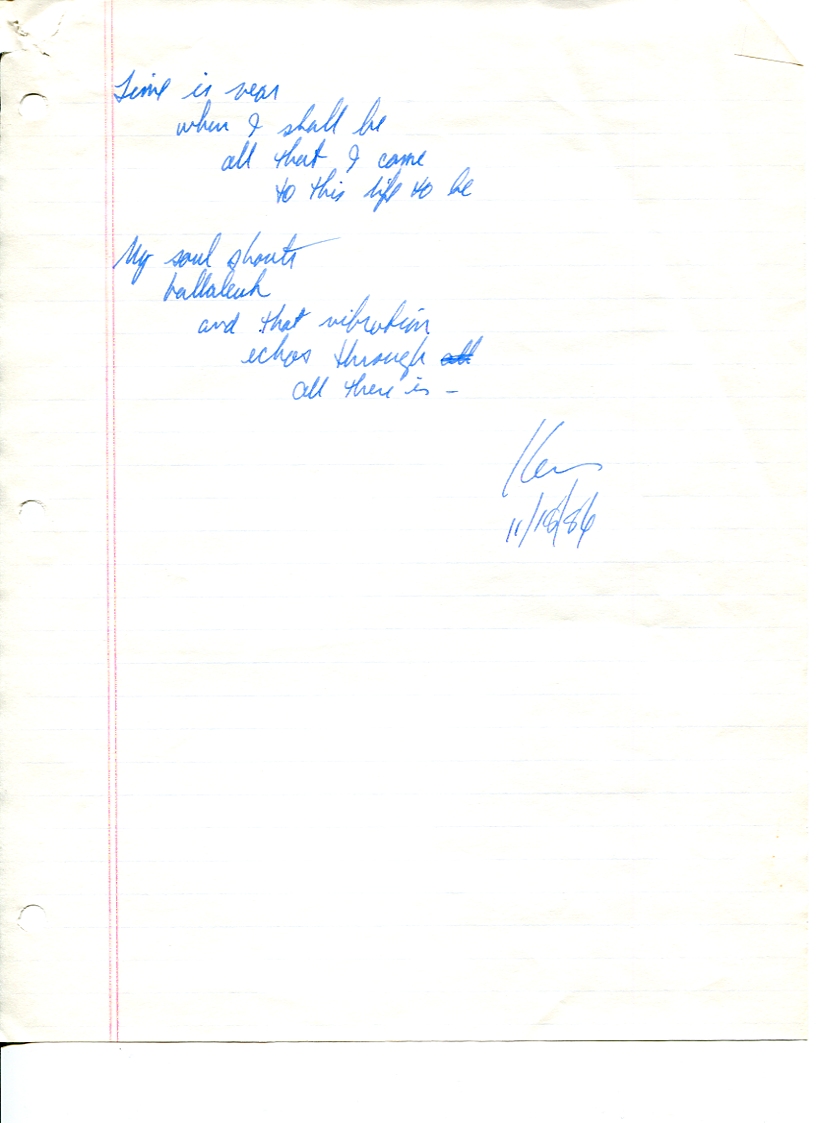 Time is near
when I shall be
all that I came
to this life to be
My soul shouts
hallaleuh
and that vibration
echos through all
all there is –
Ken
11/18/86